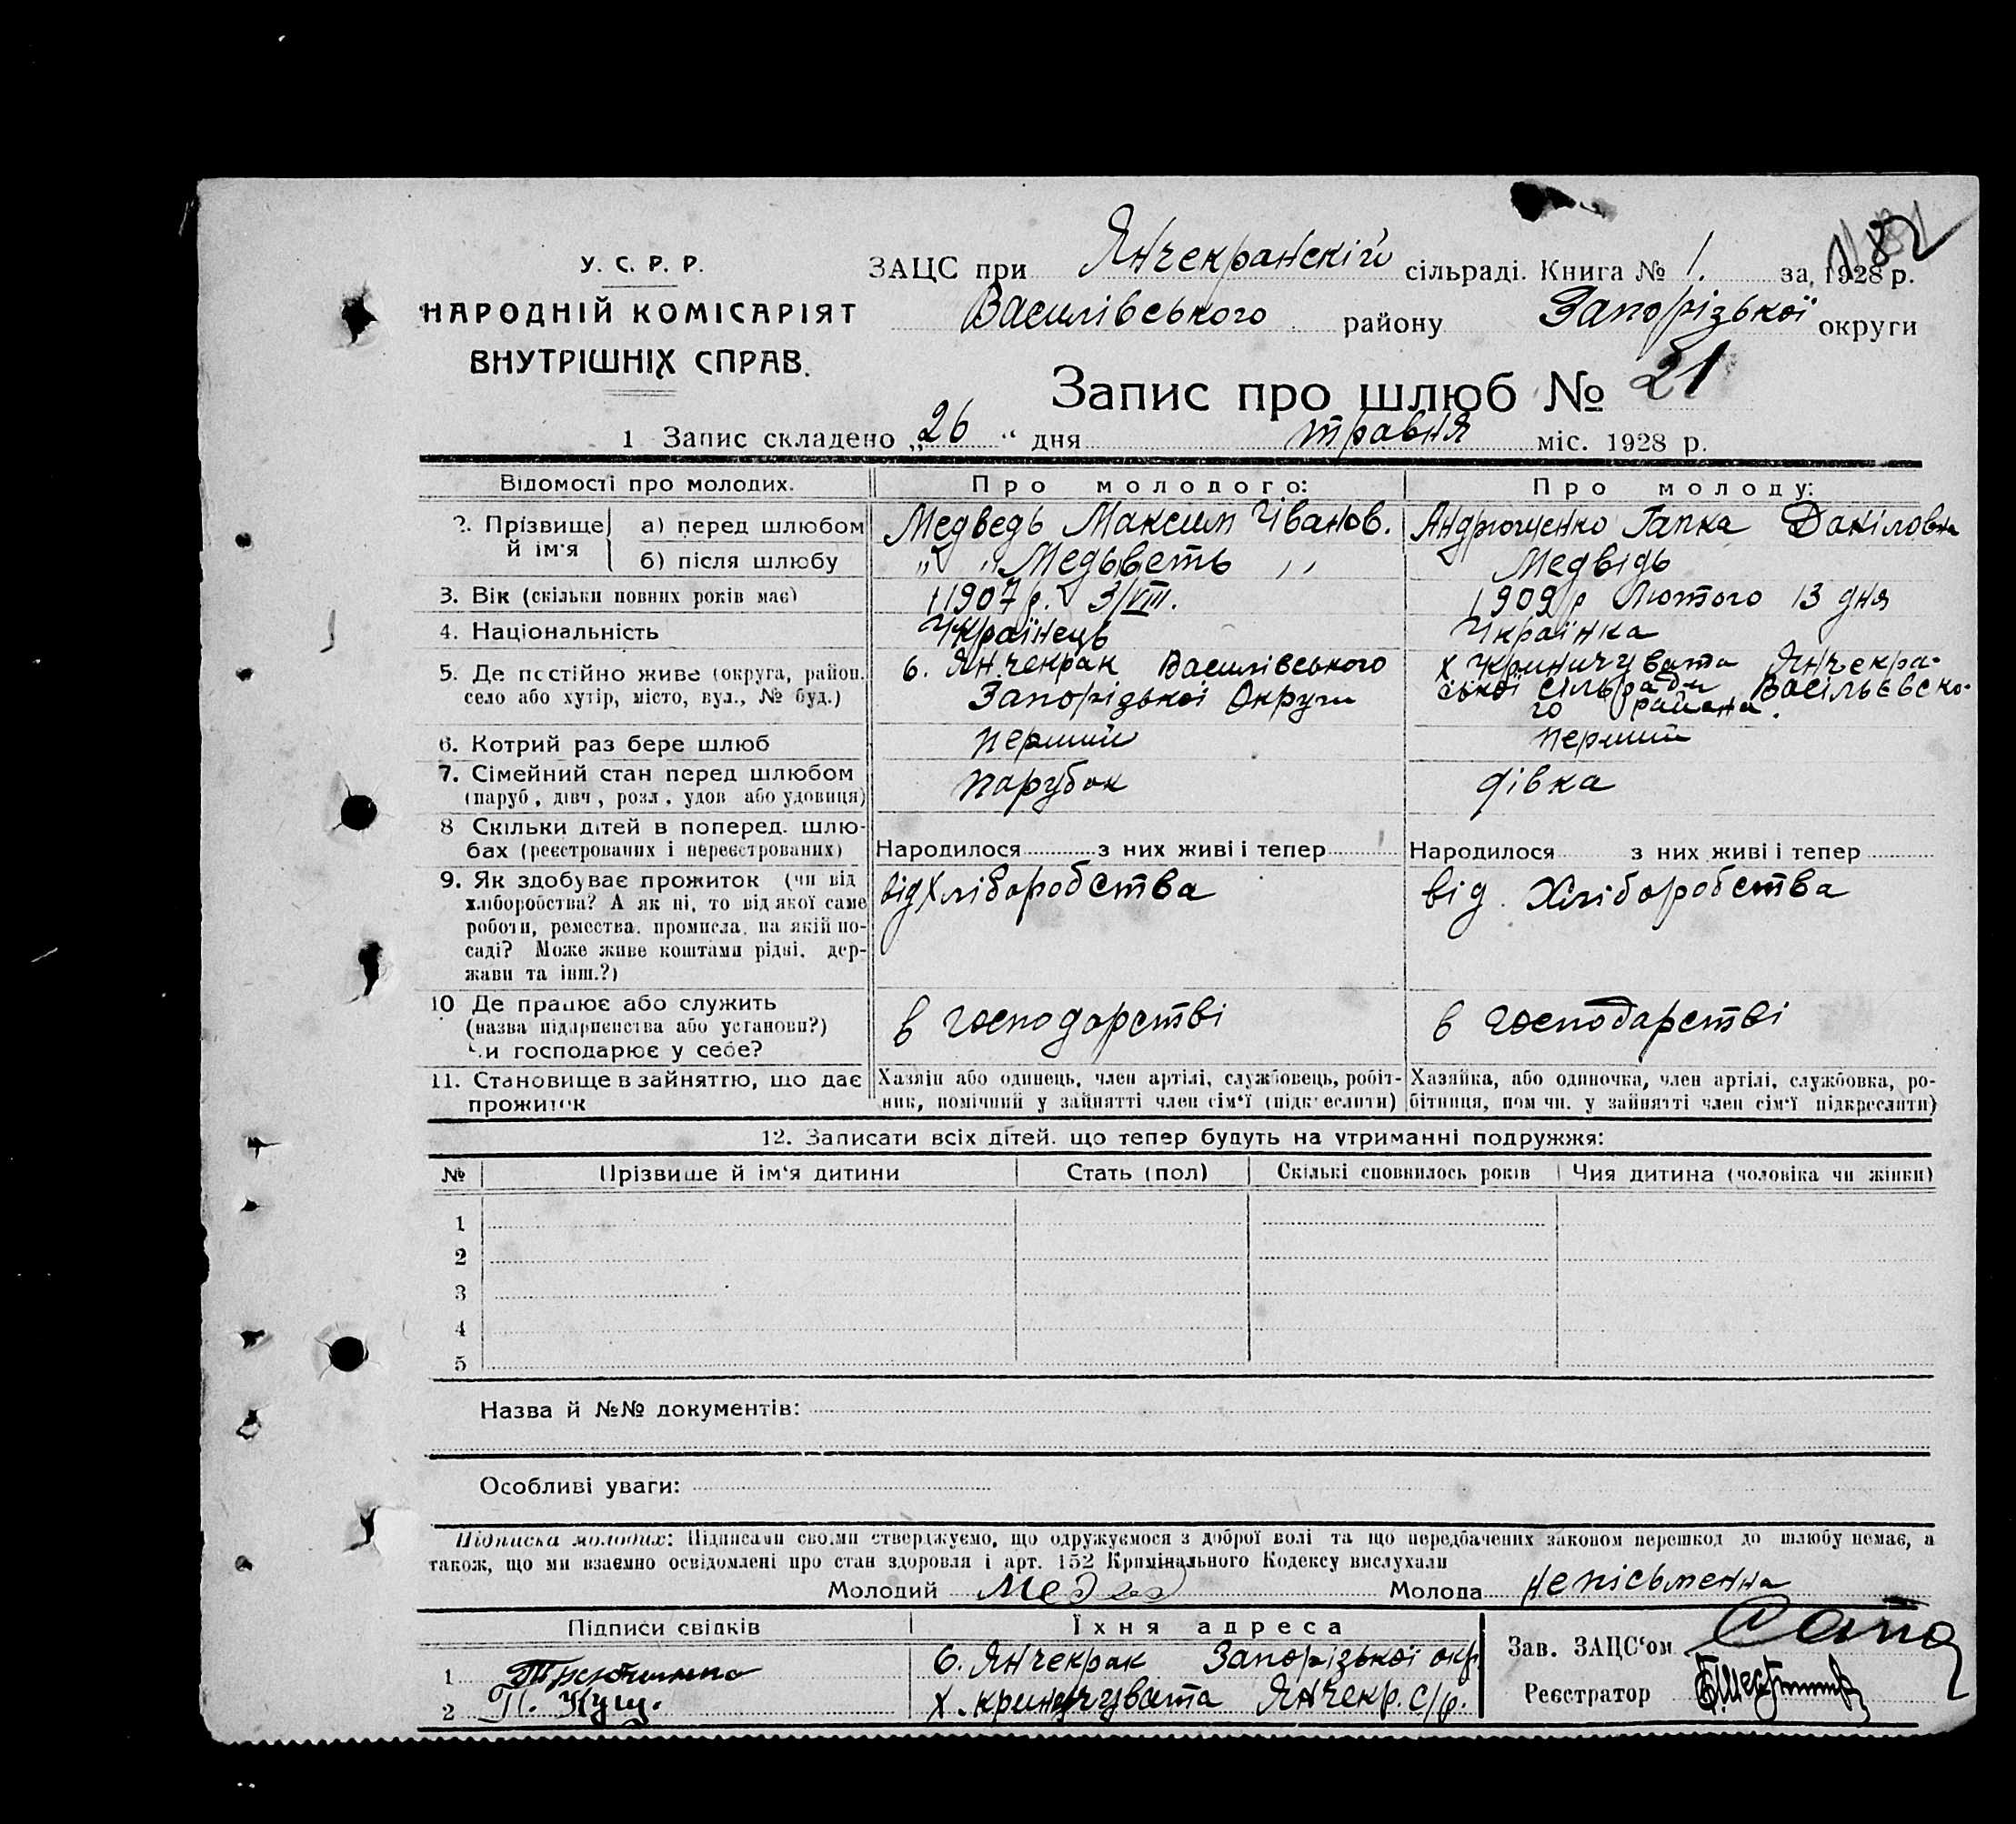 182
У. С. Р. Р.
НАРОДНІЙ КОМІСАРІЯТ
ВНУТРІШНІХ СПРАВ.
ЗАЦС при Янчекранскій сільраді. Книга № 1. за 1928 р.
Василівського району Запорізької округи
Запис про шлюб № 21
1 Запис складено „26“ дня травня міс. 1928 р.
Відомості про молодих. Про молодого: Про молоду:
2. Прізвище й ім'я а) перед шлюбом Медведь Максим Іванов. Андрющенко Гапка Даніловна
б) після шлюбу „ „ Медьветь ,, Медвідь
3. Вік (скільки повних років має) 1907 р. 3/VIII. 1909 р Лютого 13 дня
4. Національність Українець Українка
5. Де постійно живе (округа, район, село або хутір, місто, вул., № буд.)
с. Янчекрак Василівського
Запорізької Округи
х Криничувата Янчекра-
ської сільради Васільевско-
го района.
6. Котрий раз бере шлюб перший перший
7. Сімейний стан перед шлюбом парубок дівка
(паруб, дівч, розл, удов або удовиця)
8 Скільки дітей в поперед. шлю-
бах (реєстрованих і нереєстрованих) Народилося з них живі і тепер Народилося з них живі і тепер
9. Як здобуває прожиток (чи від від Хліборобства від. Хліборобства
хліборобства? А як ні, то від якої саме
роботи, ремества, промисла, на якій по-
саді? Може живе коштами рідні, дер-
жави та інш.?)
10 Де працює або служить
(назва підприємства або установи?) в господарстві в господарстві
чи господарює у себе?
11. Становище в зайняттю, що дає Хазяїн або одинець, член артілі, службовець, робіт- Хазяйка, або одиночка, член артілі, службовка, ро-
прожиток ник, помічний у зайнятті член сім'ї (підкреслити) бітниця, пом чн. у зайнятті член сім'ї підкреслити)
12. Записати всіх дітей, що тепер будуть на утриманні подружжя:
№ Прізвище й ім'я дитини Стать (пол) Скількі сповнилось років Чия дитина (чоловіка чи жінки)
1
2
3
4
5
Назва й №№ документів:
Особливі уваги:
Підписка молодих: Підписами своїми стверджуємо, що одружуємося з доброї волі та що передбачених законом перешкод до шлюбу немає, а
також, що ми взаємно освідомлені про стан здоровля і арт. 152 Кримінального Кодексу вислухали
Молодий Молода непісьменна
Підписи свідків Їхня адреса
1 с. Янчекрак Запорізької окр.
2 П. Кущ. х. криничувата Янчекр. с/р.
Зав. ЗАЦС'ом
Реєстратор